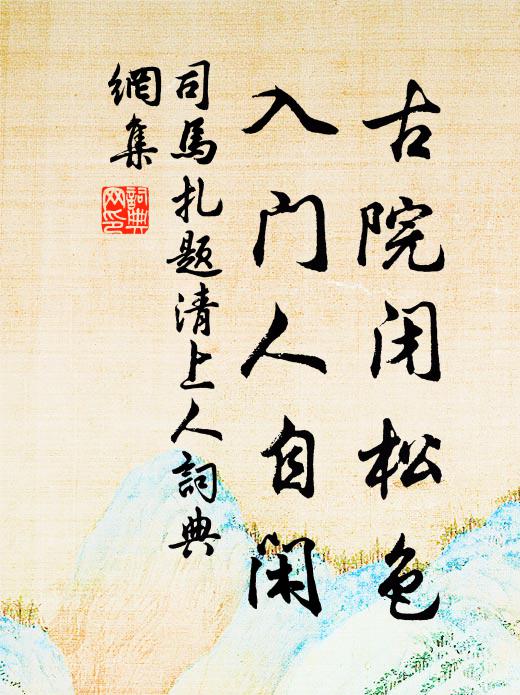 古院闭松色
入门人自闲
司馬扎题清上人詞典
網集
詞典
网印